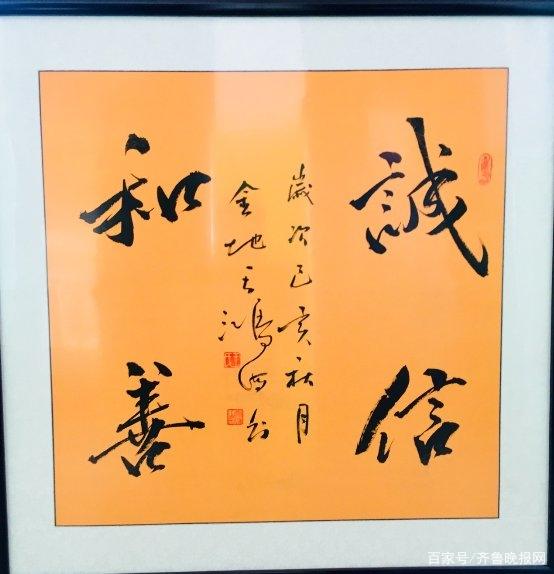 誠信
和善
歲次己亥秋月
金地王鴻江書
百家号/齐鲁晚报网